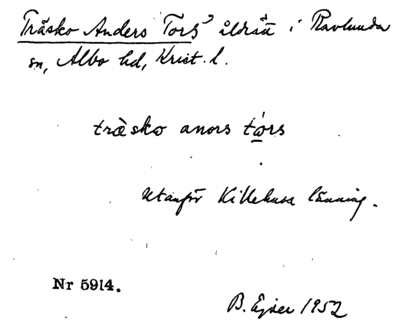 Träsko Anders Tors i Ravlunda
sn, Albo hd, Krist. l.
träsko anors tórs
Utanför Killehusa länning.
Nr 5914.
B. Ejder 1952